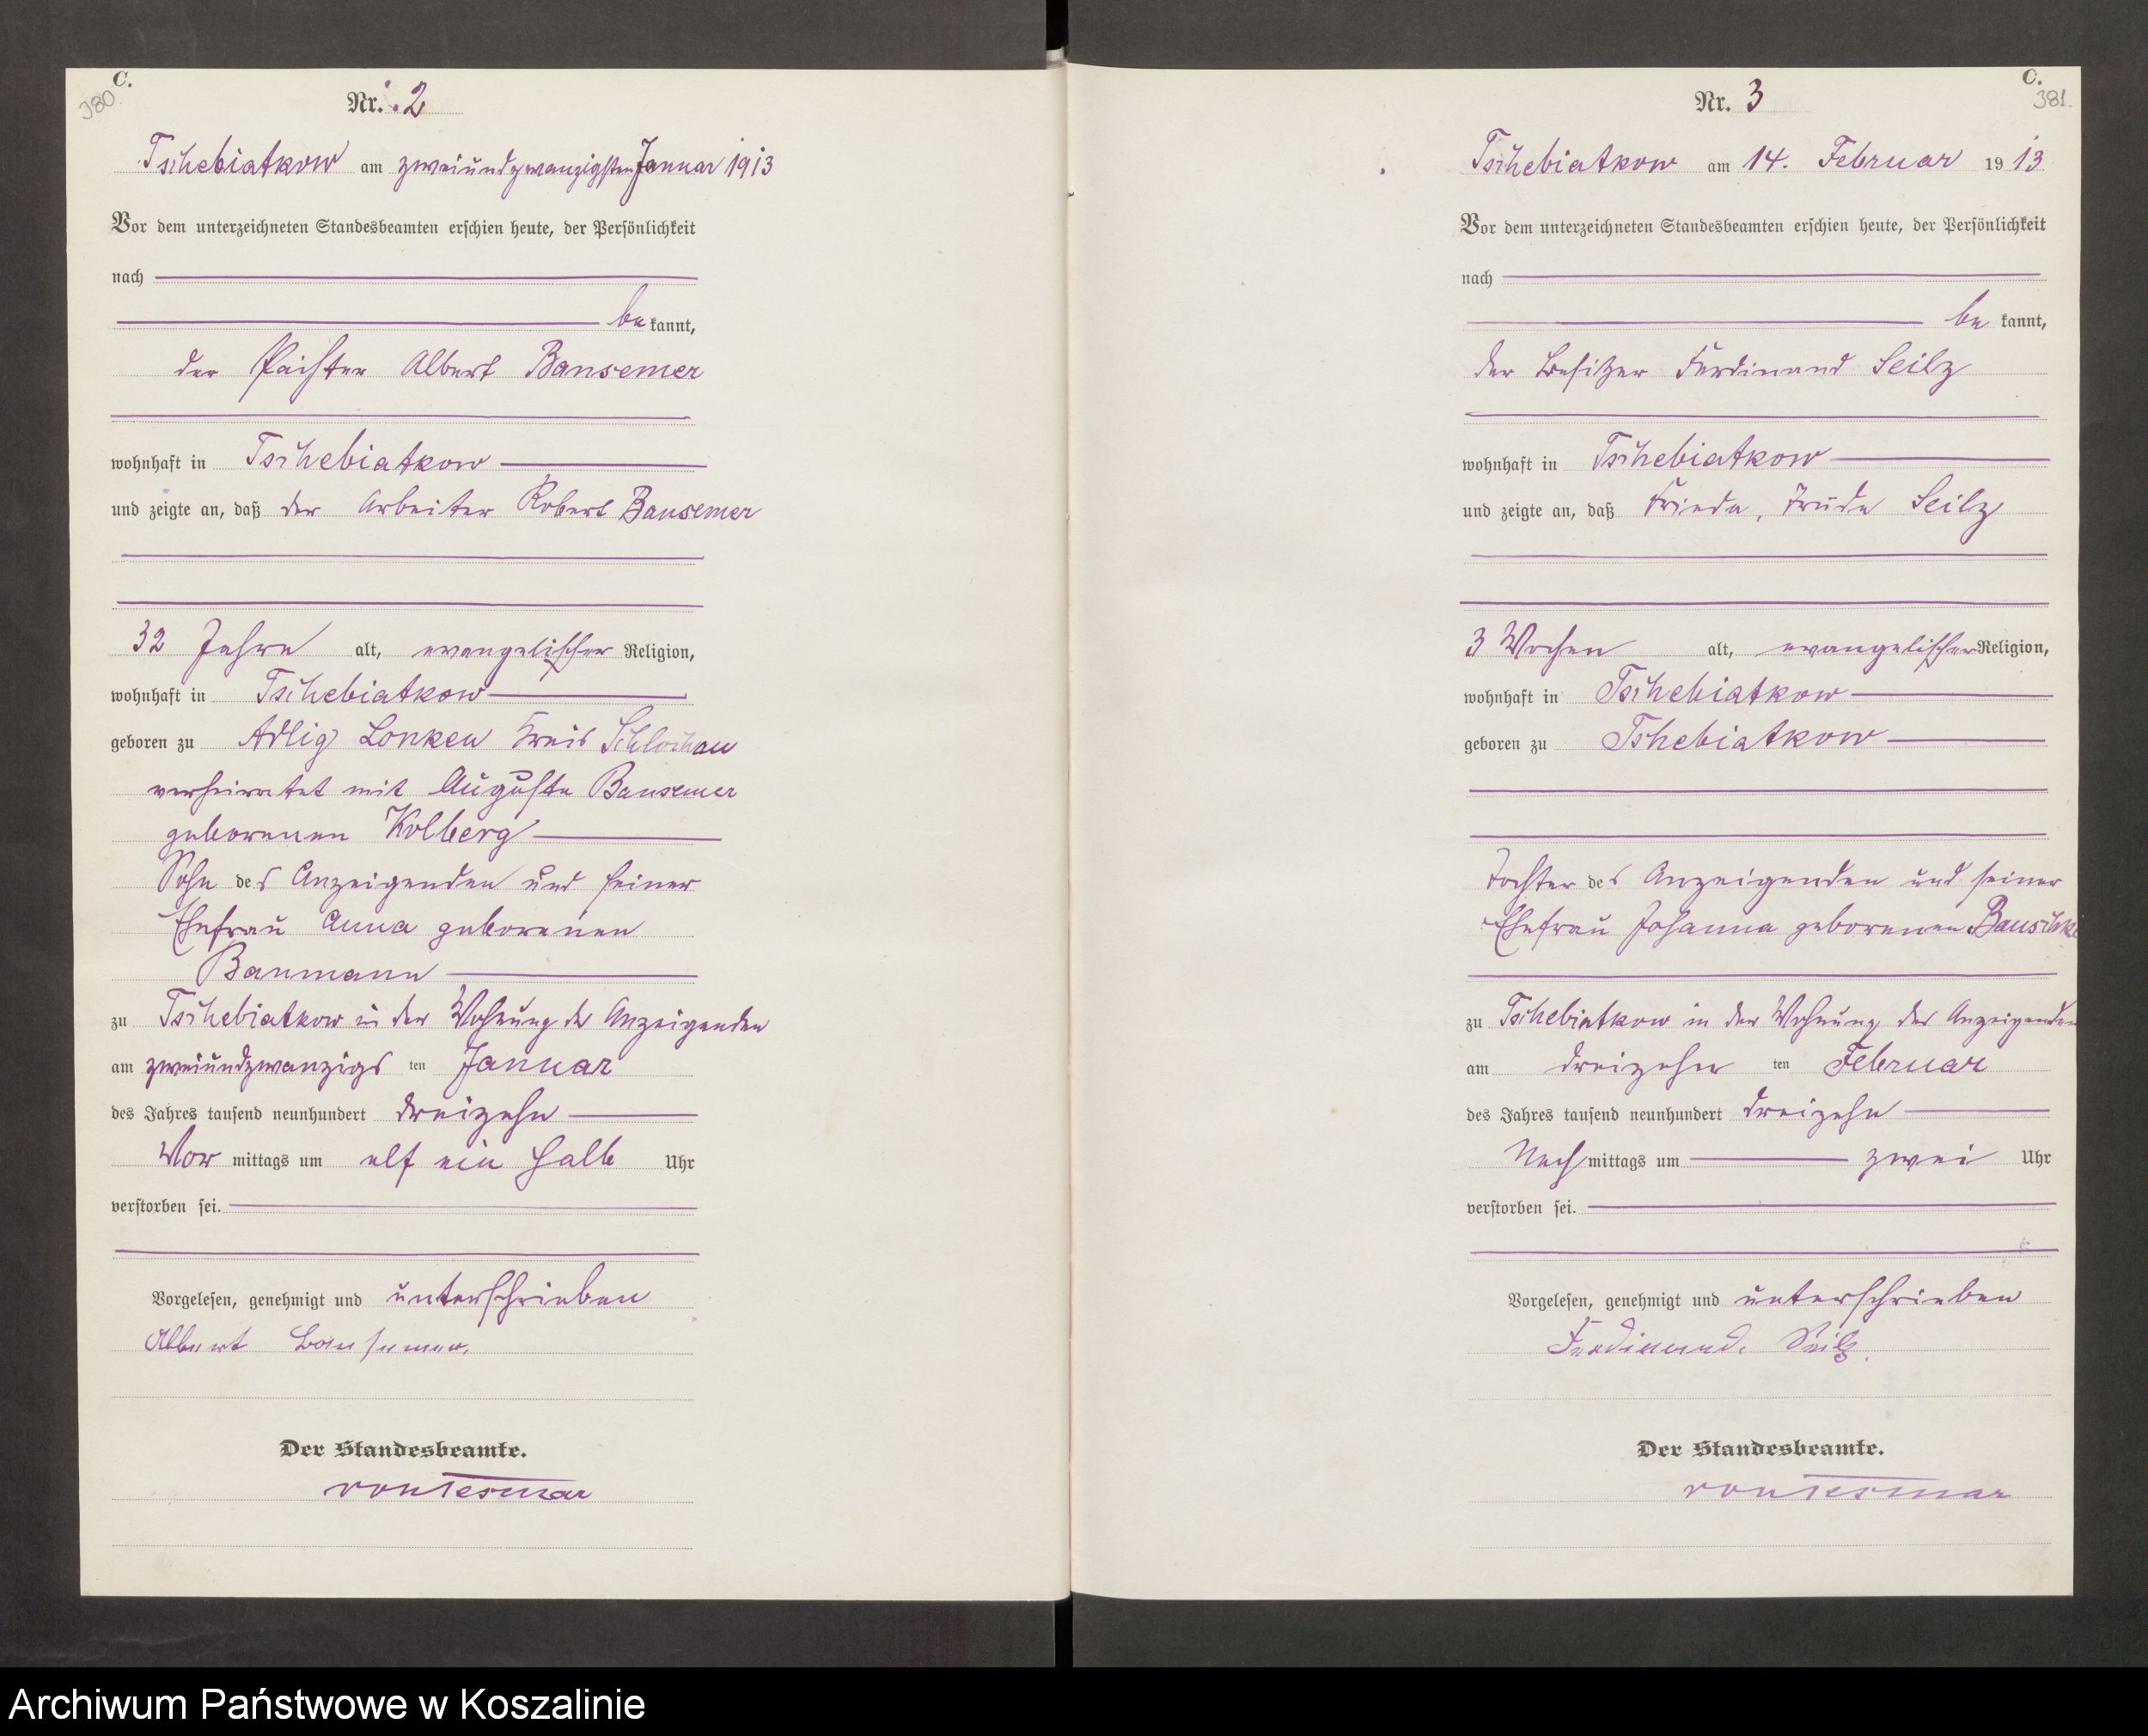 C.
380.
Nr. 2
Tschebiatkow am zweiundzwanzigsten Januar 1913
Vor dem unterzeichneten Standesbeamten erschien heute, der Persönlichkeit
nach
be kannt,
der Pächter Albert Bansemer
wohnhaft in Tschebiatkow
und zeigte an, daß der Arbeiter Robert Bansemer
32 Jahre alt, evangelischer Religion,
wohnhaft in Tschebiatkow
geboren zu Adlig Lonken Kreis Schlochau
verheiratet mit Auguste Bansemer
geborenen Kolberg
Sohn des Anzeigenden und seiner
Ehefrau Anna geborenen
Banmann
zu Tschebiatkow in der Wohnung des Anzeigenden
am zweiundzwanzigs ten Januar
des Jahres tausend neunhundert dreizehn
Vor mittags um elf ein halb Uhr
verstorben sei.
Vorgelesen, genehmigt und unterschrieben
Albert Bansemer.
Der Standesbeamte.
von Tesmar
C.
381.
Nr. 3
Tschebiatkow am 14. Februar 1913
Vor dem unterzeichneten Standesbeamten erschien heute, der Persönlichkeit
nach
be kannt,
der Besitzer Ferdinand Seilz
wohnhaft in Tschebiatkow
und zeigte an, daß Frieda, Trude Seilz
3 Wochen alt, evangelischer Religion,
wohnhaft in Tschebiatkow
geboren zu Tshebiatkow
Tochter des Anzeigenden und seiner
Ehefrau Johanna geborenen
zu Tschebiatkow in der Wohnung des Anzeigenden
am dreizehn ten Februar
des Jahres tausend neunhundert dreizehn
Nach mittags um zwei Uhr
verstorben sei.
Vorgelesen, genehmigt und unterschrieben
Ferdinand. Seilz.
Der Standesbeamte.
von Tesmar
Archiwum Państwowe w Koszalinie